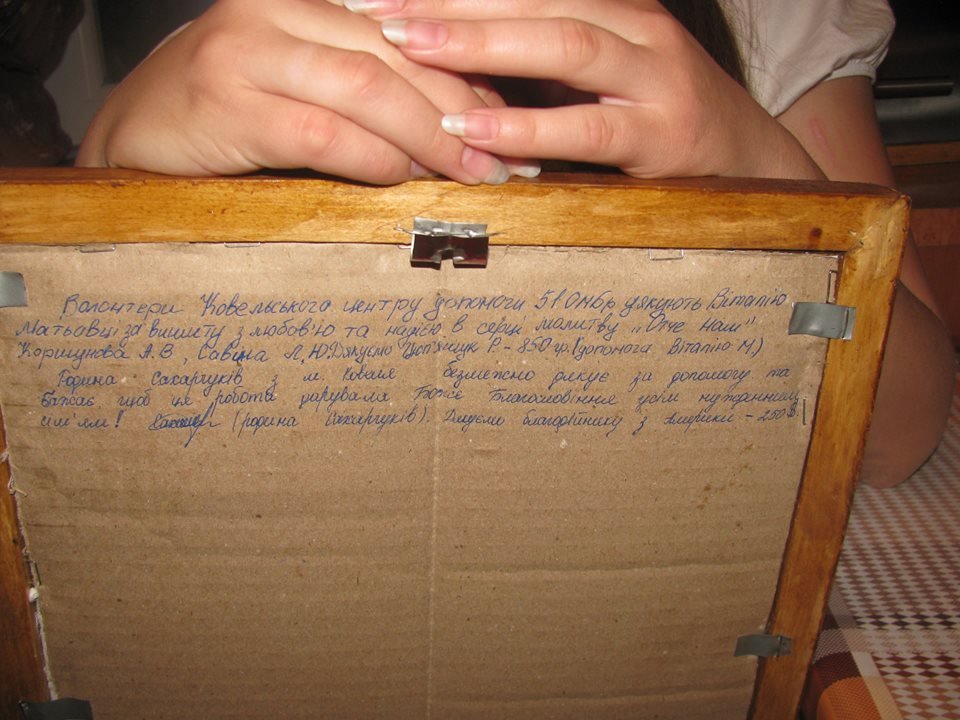 Волонтери Ковельського центру допомоги 51 Омбр дякують Віталію
Матьовці за вишиту з любов'ю та надією в серці молитву „Отче наш"
Коршунова А.В., Савіна Л.Ю. Дякуємо Р. - 850 гр. (допомога Віталію М.)
Родина Сахарчуків з м. Ковеля безмежно дякує за допомогу та
бажає щоб ця робота дарувала Боже Благословіння усім нужденним
сім'ям! (родина Сахарчуків). Дякуємо благодійнику з Америки - 250$